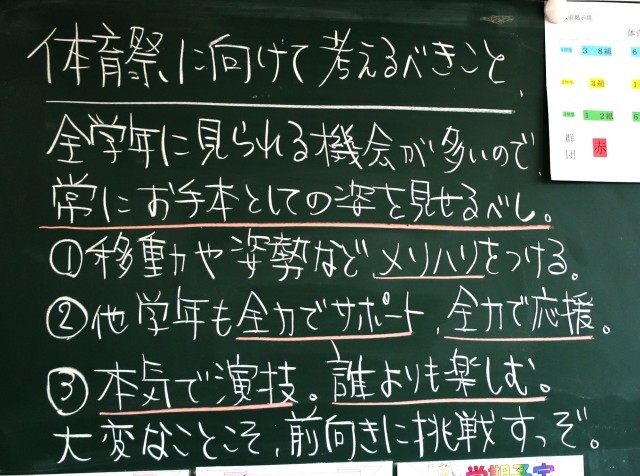 体育祭に向けて考えるべきこと、
全学年に見られる機会が多いので、
常にお手本としての姿を見せるべし。
①移動や姿勢など、メリハリをつける。
②他学年も全力でサポート、全力で応援。
③本気で演技。誰よりも楽しむ。
大変なことこそ、前向きに挑戦すっぞ。
体育
3 8組
3組
1 2組
群団 赤
学期予定